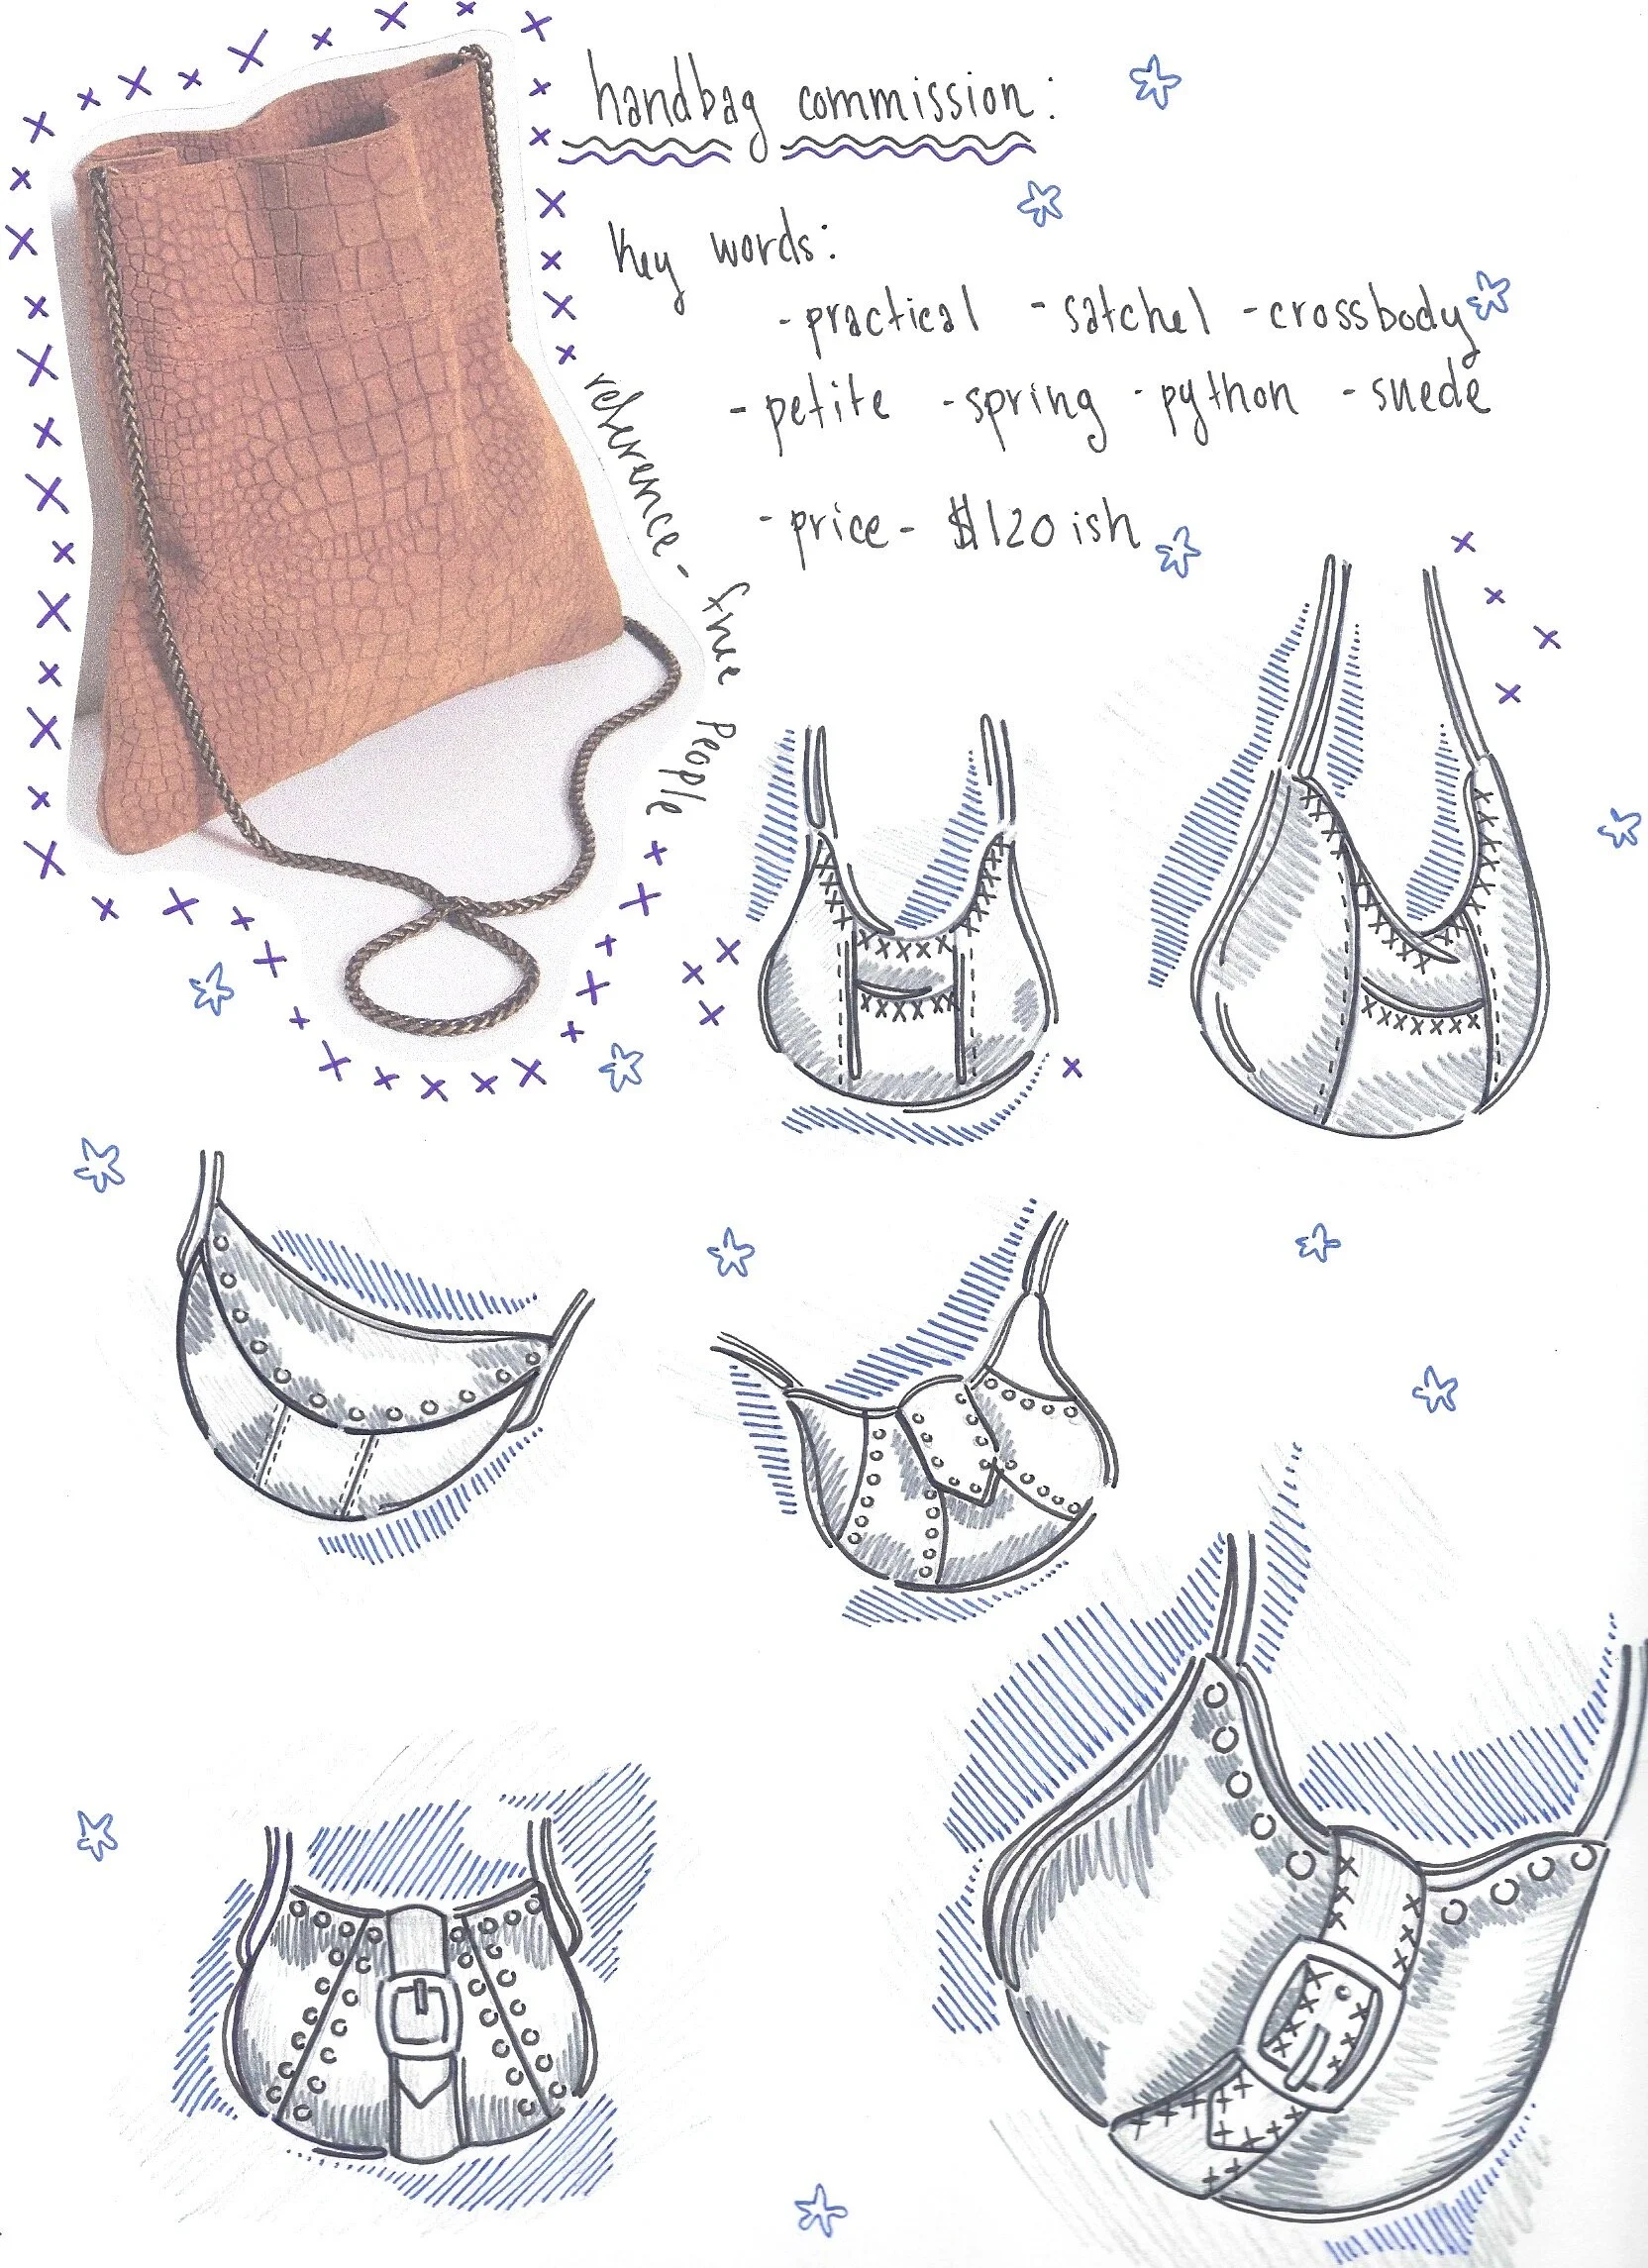 handbag commission:
key words:
-practical -satchel -crossbody
-petite -spring -python -suede
-price- $120 ish
reference - free people